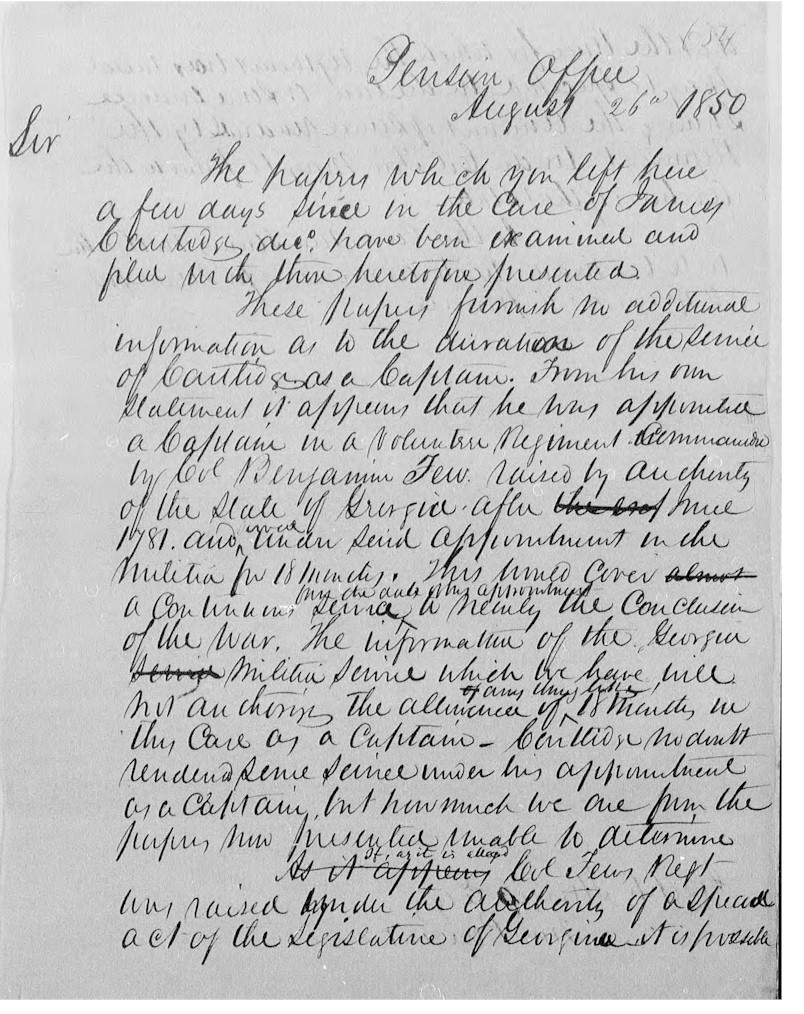 Pension Office
August 26th 1850
Sir
The papers which you left here
a few days since in the case of James
Cartledge, decd. have been examined and
filed with those heretofore presented.
These papers furnish no additional
information as to the duration of the service
of Cartledge as a Captain. From his own
statement it appears that he was appointed
a Captain in a Volunteer Regiment commanded
by Col Benjamin Few. raised by authority
of the State of Georgia after June
1781. and served under said appointment in the
Militia for 18 months. This would cover almost
from the date of his appointment
a continuous service, to nearly the conclusion
of the war. The information of the Georgia
service Militia service which we have, will
of any thing like
not authorize the allowance of 18 months in
this case as a Captain - Cartledge no doubt
rendered some service under his appointment
as a Captain, but how much we are from the
papers now presented unable to determine
If, as it is alleged
As it appears Col Fews Regt
was raised under the authority of a special
act of the Legislature of Georgia it is possible